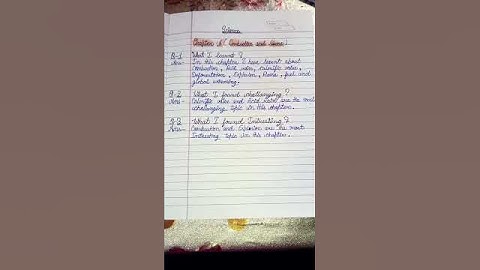 Science
Chapter 6 (Combustion and flame)
Q-1 What I learnt ?
Ans- In this chapter I have learnt about
Combustion, fuel, calorific value,
Deforestation, Explosion, flame, fuel and
global warming.
Q-2 What I found challanging ?
Ans- Calorific value and Acid rain are the most
challanging topic in this chapter.
Q-3 What I found Intresting ?
Ans- Combustion and Explosion are the most
Intresting topic in this chapter.